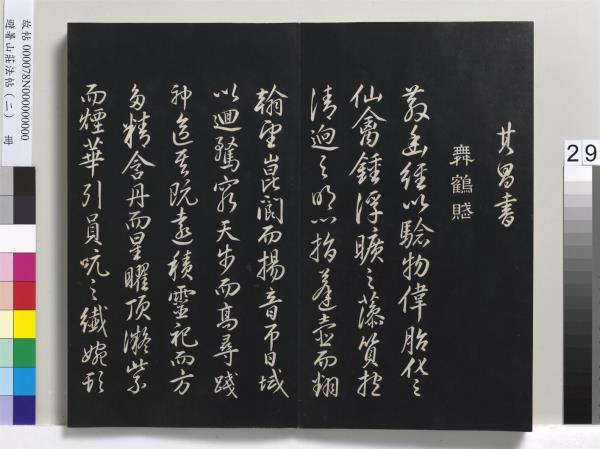 其昌書
舞鶴賦
散幽經以驗物偉胎化之
仙禽鍾浮曠之藻質抱
清迥之明心指蓬壺而翻
翰望崑閬而揚音帀日域
以迴騖窮天步而高尋踐
神區其既遠積靈祀而方
多精含丹而星曜頂凝紫
而煙華引員吭之纖婉頓
故帖 000078N000000000
避暑山莊法帖(二) 冊
29